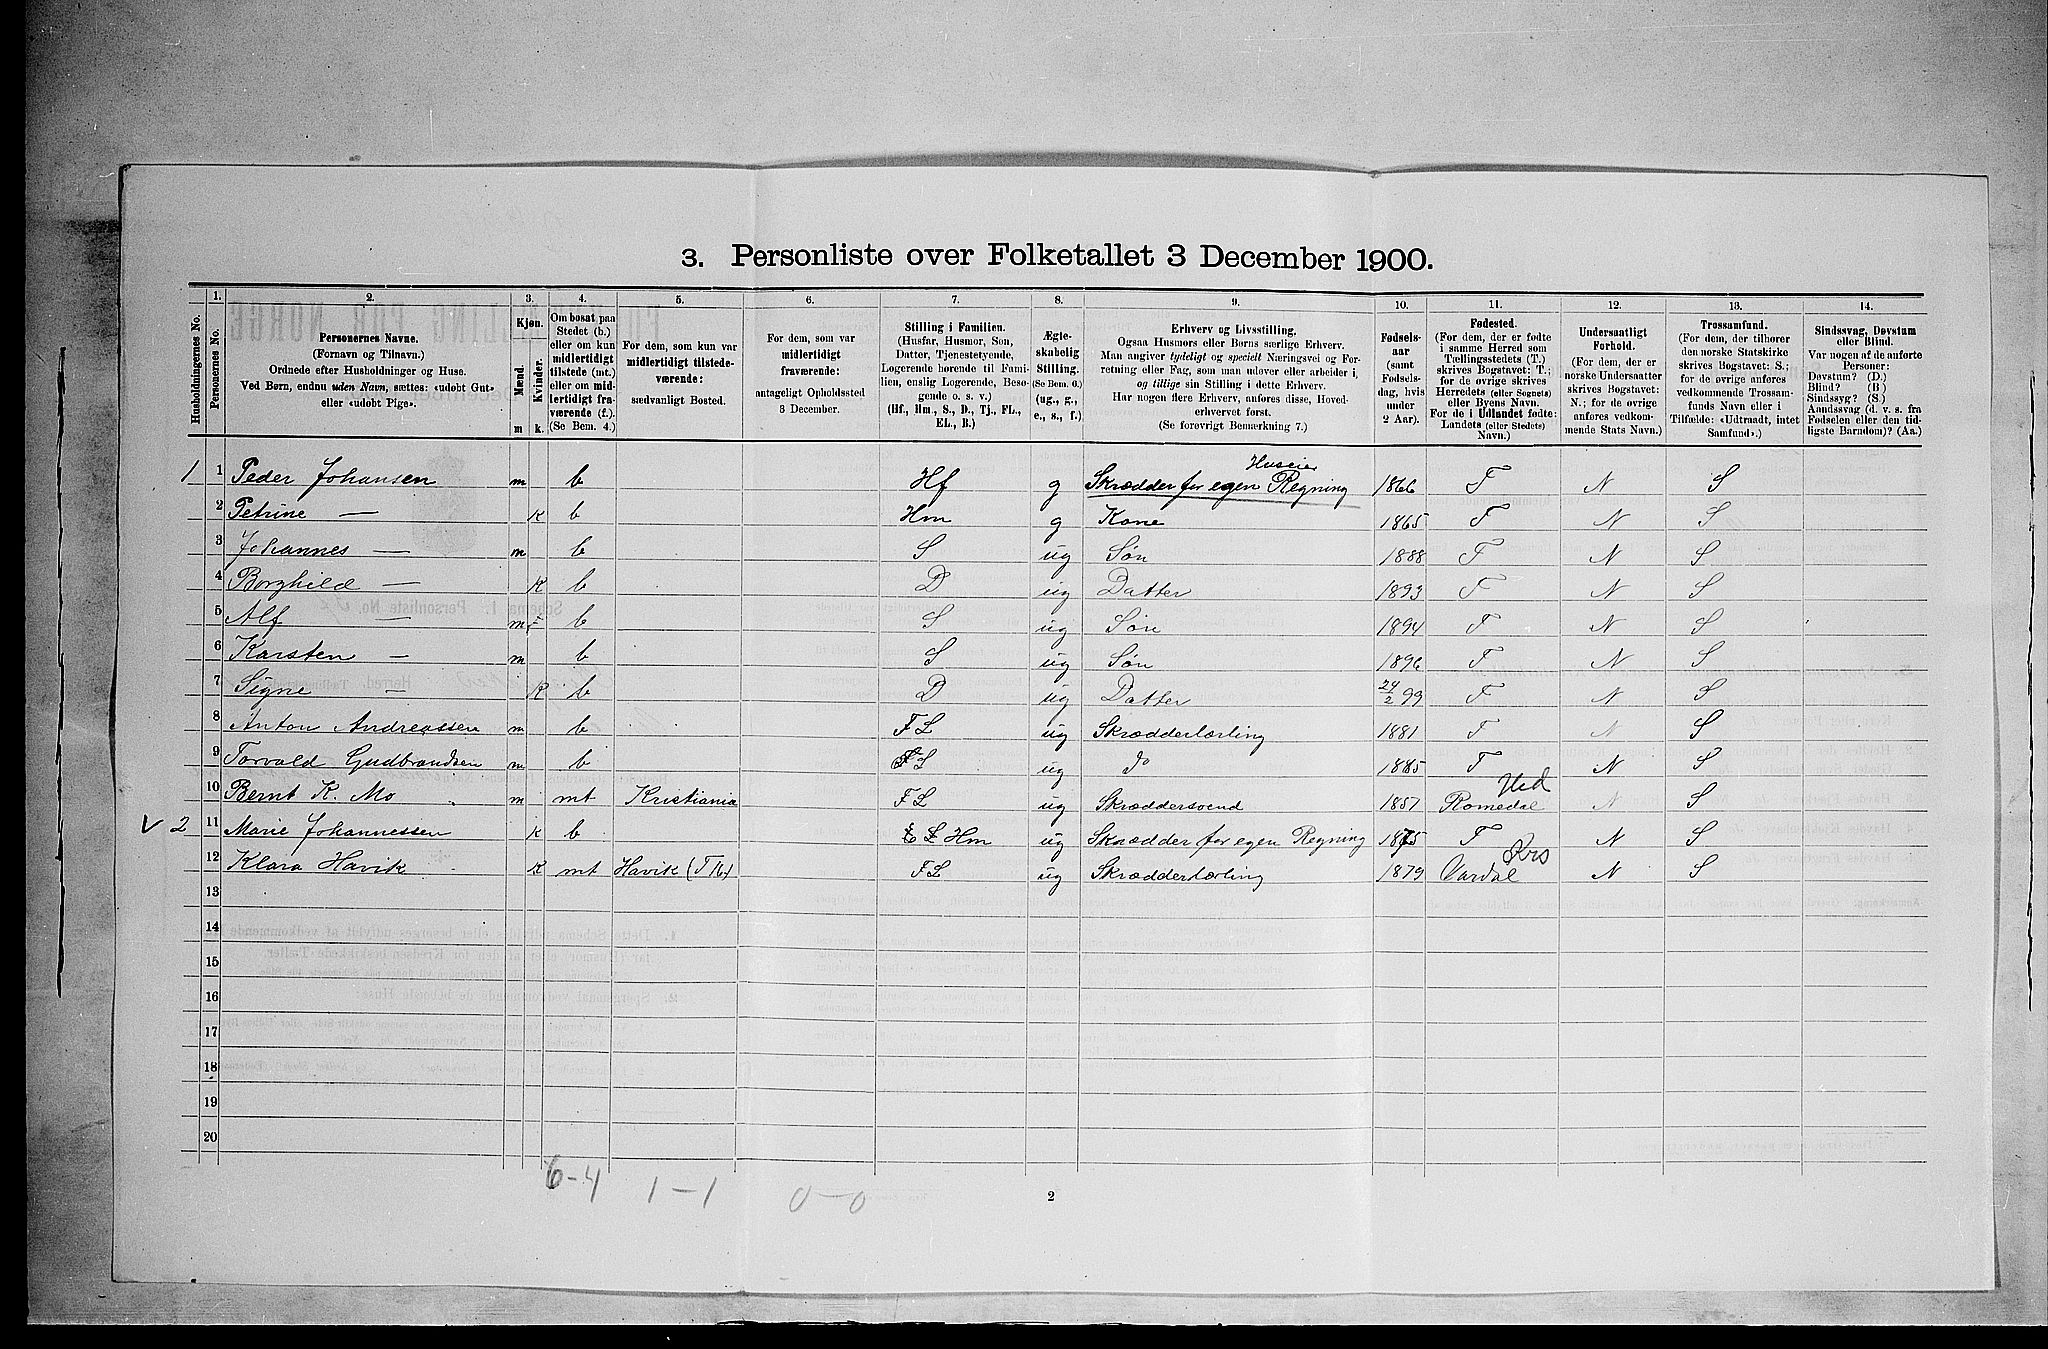 3. Personliste over Folketallet 3 December 1900.
1. 2. 3. 4. 5. 6. 7. 8. 9. 10. 11. 12. 13. 14.
Husholdningernes No.
Personernes No.
Personernes Navne.
(Fornavn og Tilnavn.)
Ordnede efter Husholdninger og Huse.
Ved Børn, endnu uden Navn, sættes: «udøbt Gut»,
eller «udøbt Pige».
Kjøn.
Mænd.
Kvinder.
m k.
Om bosat paa
Stedet (b.)
eller om kun
midlertidigt
tilstede (mt.)
eller om mid-
lertidigt fra-
værende (f.).
(Se Bem. 4.)
For dem, som kun var
midlertidigt tilstede-
værende:
sædvanligt Bosted.
For dem, som var
midlertidigt
fraværende:
antageligt Opholdssted
3 December.
Stilling i Familien.
(Husfar, Husmor, Søn,
Datter, Tjenestetyende,
Logerende hørende til Fami-
lien, enslig Logerende, Besø-
gende o. s. v.)
(Hf., Hm., S., D., Tj., FL.,
EL., B.)
Ægte-
skabelig
Stilling.
(Se Bem. 6.)
(ug., g.,
e., s., f.)
Erhverv og Livsstilling.
Ogsaa Husmors eller Børns særlige Erhverv.
Man angiver tydeligt og specielt Næringsvei og For-
retning eller Fag, som man udøver eller arbeider i,
og tillige sin Stilling i dette Erhverv.
Har nogen flere Erhverv, anføres disse, Hoved-
erhvervet først.
(Se forøvrigt Bemærkning 7.)
Fødsels-
aar
(samt
Fødsels-
dag, hvis
under
2 Aar).
Fødested.
(For dem, der er fødte
i samme Herred som
Tællingsstedets (T.)
skrives Bogstavet: T.;
for de øvrige skrives
Herredets (eller Sognets)
eller Byens Navn.
For de i Udlandet fødte:
Landets (eller Stedets)
Navn.)
Undersaatligt
Forhold.
(For dem, der er
norske Undersaatter
skrives Bogstavet:
N.; for de øvrige
anføres vedkom-
mende Stats Navn.)
Trossamfund.
(For dem, der tilhører
den norske Statskirke
skrives Bogstavet: S.;
for de øvrige anføres
vedkommende Trossam-
funds Navn eller i
Tilfælde: «Udtraadt, intet
Samfund».)
Sindssvag, Døvstum
eller Blind.
Var nogen af de anførte
Personer:
Døvstum? (D.)
Blind? (B.)
Sindssyg? (S.)
Aandssvag (d. v. s. fra
Fødselen eller den tid-
ligste Barndom)? (Aa.)
Huseier
1 1 Peder Johansen m b Hf g Skrædder for egen Regning 1866 T N S
2 Petrine — k b Hm g Kone 1865 T N S
3 Johannes — m b S ug Søn 1888 T N S
4 Borghild — k b D ug Datter 1893 T N S
5 Alf — m b S ug Søn 1894 T N S
6 Karsten — m b S ug Søn 1896 T N S
7 Signe — k b D ug Datter 24/2 99 T N S
8 Anton Andreassen m b FL ug Skrædderlærling 1881 T N S
9 Torvald Gudbrandsen m b FL ug do 1885 T N S
Hed
10 Bernt K. Mo m mt Kristiania FL ug Skræddersvend 1857 Romedal N S
v 2 11 Marie Johannessen k b Hm ug Skrædder for egen Regning 1875 T N S
Krs
12 Klara Havik k mt Havik (T16) FL ug Skrædderlærling 1879 Vardal N S
13
14
15
16
17
18
19
20
6-4 1-1 0-0
2